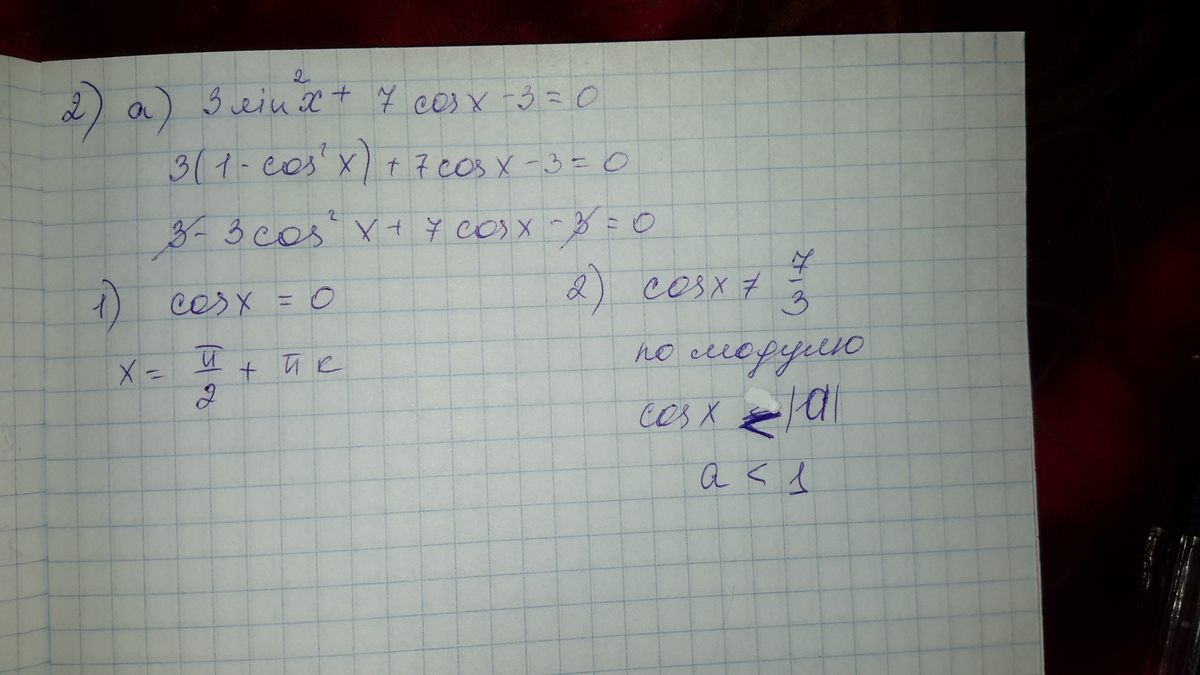 2) а) 3 sin²x + 7 cosx - 3 = 0
3(1 - cos²x) + 7cosx - 3 = 0
3 - 3cos²x + 7cosx - 3 = 0
1) cosx = 0
x = π/2 + πк
2) cosx ≠ 7/3
по модулю
cosx ≤ |a|
a < 1